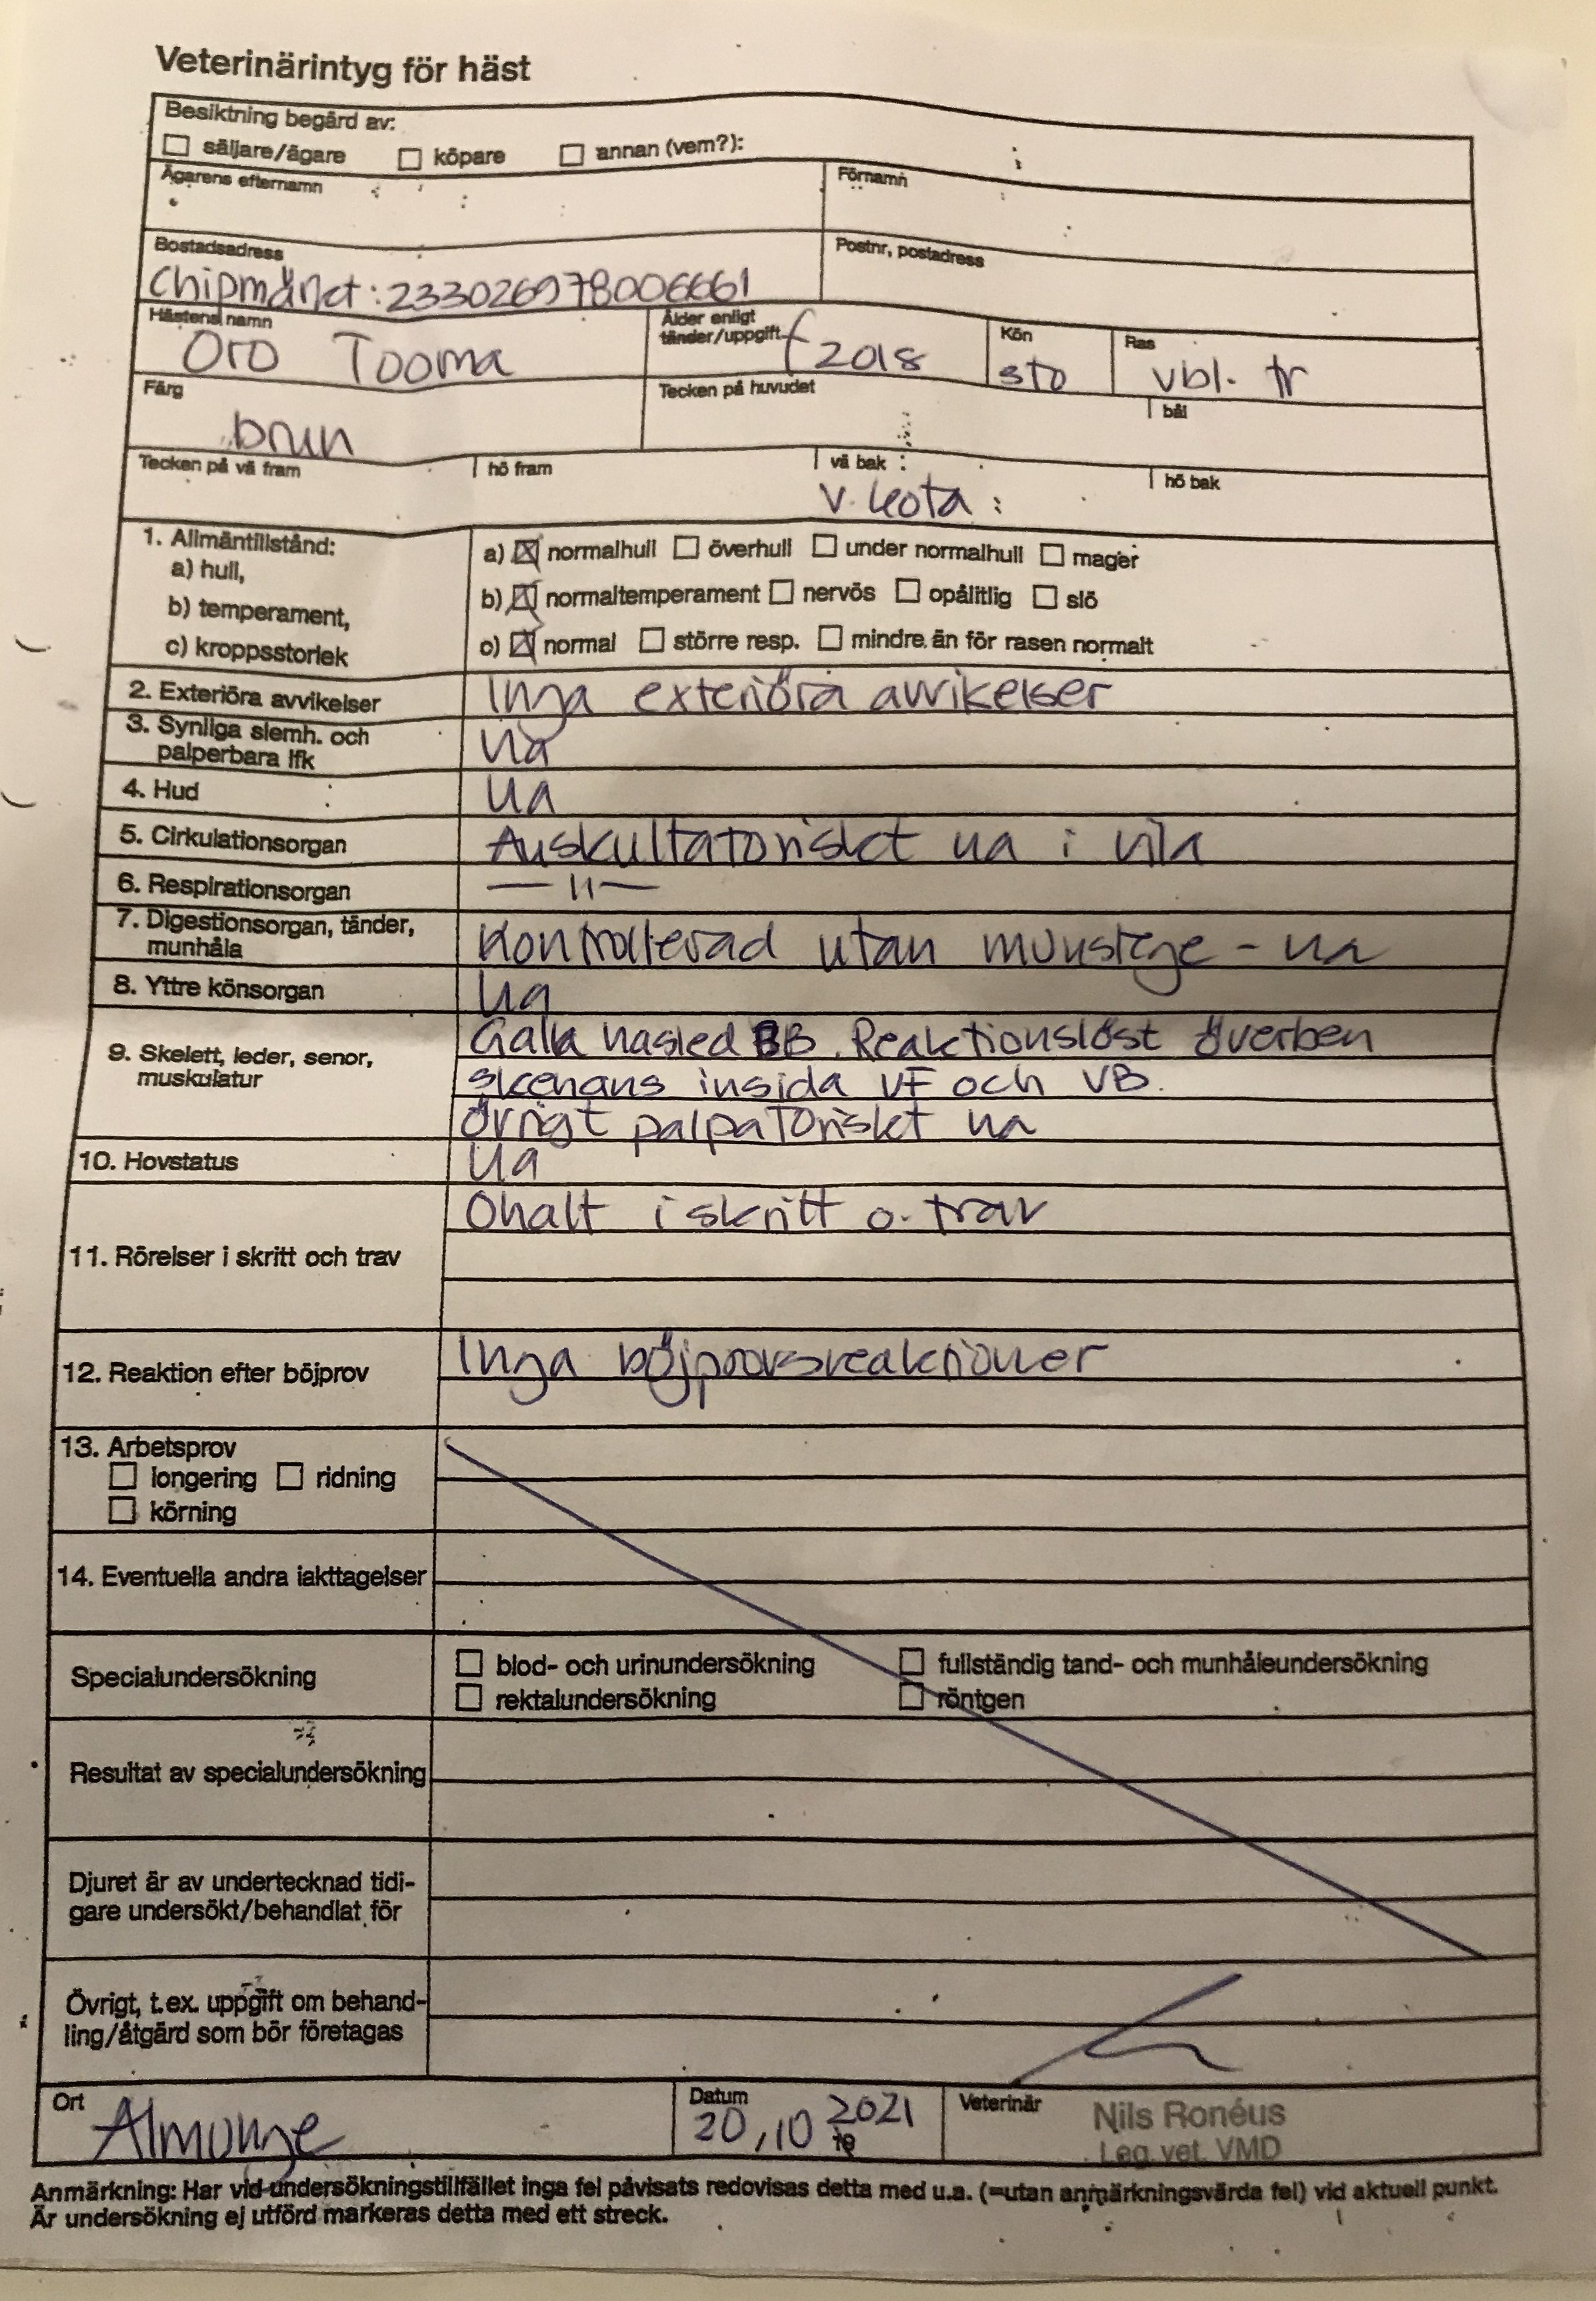 Veterinärintyg för häst
Besiktning begärd av:
säljare/ägare köpare annan (vem?):
Ägarens efternamn Förnamn
Bostadsadress Postnr, postadress
Chipmärkt: 233026978006661
Hästens namn Ålder enligt tänder/uppgift Kön Ras
Oro Tooma f 2018 sto vbl. tr
Färg Tecken på huvudet bål
brun
Tecken på vä fram hö fram vä bak hö bak
v. kota
1. Allmäntillstånd:
a) hull, a) normalhull överhull under normalhull mager
b) temperament, b) normaltemperament nervös opålitlig slö
c) kroppsstorlek c) normal större resp. mindre än för rasen normalt
2. Exteriöra avvikelser Inga exteriöra avvikelser
3. Synliga slemh. och
palperbara lfk ua
4. Hud ua
5. Cirkulationsorgan Auskultatoriskt ua i vila
6. Respirationsorgan — 11 —
7. Digestionsorgan, tänder,
munhåla Kontrollerad utan munstege - ua
8. Yttre könsorgan ua
9. Skelett, leder, senor,
muskulatur
Galla hasled BB. Reaktionslöst överben
skenans insida VF och VB.
Övrigt palpatoriskt ua
10. Hovstatus ua
11. Rörelser i skritt och trav Ohalt i skritt o. trav
12. Reaktion efter böjprov Inga böjprovsreaktioner
13. Arbetsprov
longering ridning
körning
14. Eventuella andra iakttagelser
Specialundersökning blod- och urinundersökning fullständig tand- och munhåleundersökning
rektalundersökning röntgen
Resultat av specialundersökning
Djuret är av undertecknad tidi-
gare undersökt/behandlat för
Övrigt, t.ex. uppgift om behand-
ling/åtgärd som bör företagas
Ort Datum Veterinär
Almunge 20,10 2021 19 Nils Ronéus
Leg. vet. VMD
Anmärkning: Har vid undersökningstillfället inga fel påvisats redovisas detta med u.a. (=utan anmärkningsvärda fel) vid aktuell punkt.
Är undersökning ej utförd markeras detta med ett streck.